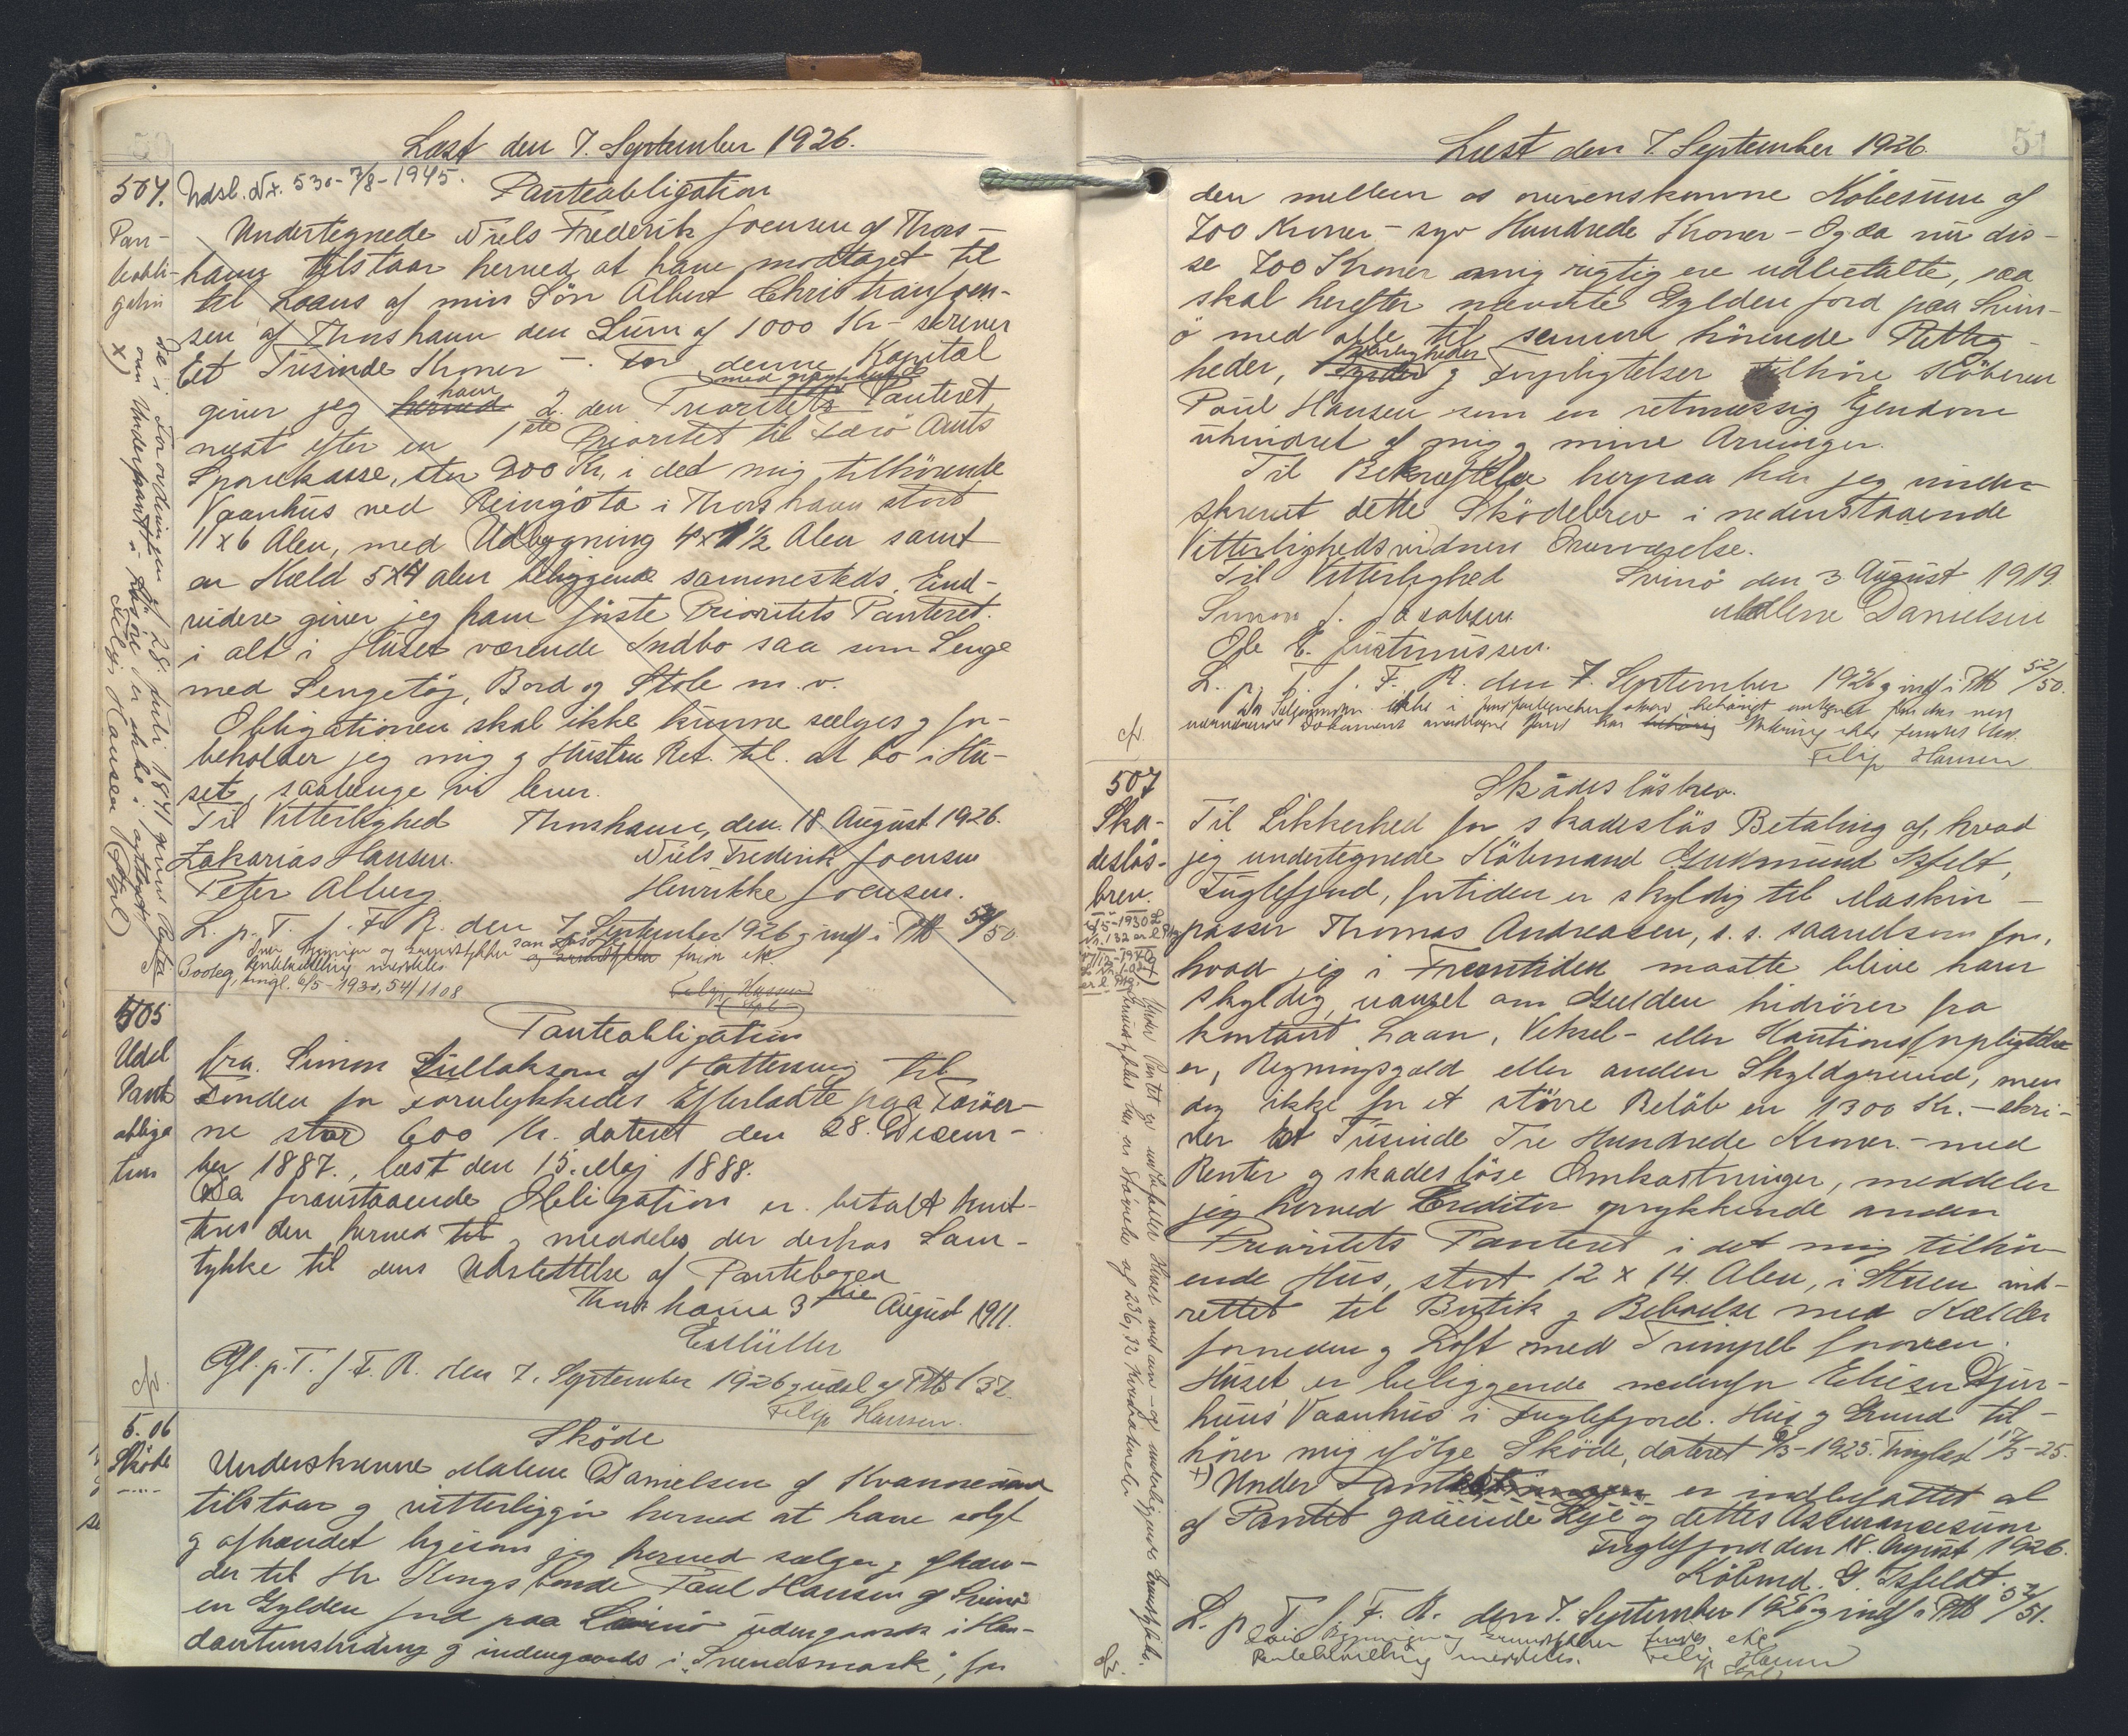 Læst den 7. September 1926.
504. Udsl. Nr. 530 - 7/8 - 1945.
Panteobligation
Pan-
teobli-
gation
x)
Undertegnede Niels Frederik Joensen af Thors-
havn tilstaar herved at have modtaget til
til Laans af min Sön Albert Christian Joen-
sen af Thorshavn den Sum af 1000 Kr - skriver
Eet Tusinde Kroner -. For denne Kapital
giver jeg herved ham 2. den Prioritets Panteret
næst efter en 1ste Prioritet til Færö Amts
Sparekasse, stor 900 Kr, i det mig tilhörende
Vaanhus ved Reingöta i Thorshavn stort
11 x 6 Alen, med Udbygning 4 x 1 1/2 Alen samt
en Kæld 5 x 4 alen beliggende sammesteds. End-
videre giver jeg ham förste Prioritets Panteret
i alt i Huset værende Indbo saa som Senge
med Sengetöj, Bord og Stole m.v.
Obligationen skal ikke kunne sælges og for-
beholder jeg mig og Hustru Ret til at bo i Hu-
set, saalænge vi lever.
Til Vitterlighed Thorshavn, den 18 August 1926.
Zakarias Hansen. Niels Frederik Joensen
Peter Alberg Henrikke Joensen.
L. p. T. f. F. R. den 7 September 1926 og indf i Ptb 52/50
Pantehæftelse meddeles.
tingl. 6/5 - 1930, 54/1108
Filip Hansen
Da i Forordningen af 28. Juli 1841
om Underpant i Lösöre er ikke iagttaget
Filip Hansen
505
Udsl
Pant
obliga
tion
Panteobligation
fra Simon Zullaksen af Hattervig til
Fonden for Forulykkedes Efterladte paa Færöer-
ne stor 600 Kr. dateret den 28. Decem-
ber 1887., læst den 15. Maj 1888.
Da foranstaaende Obligation er betalt kvit-
teres den herved til og meddeles der derhos Sam-
tykke til dens Udslettelse af Pantebogen
Thorshavn 3die August 1911.
E. Müller
Afl. p. T. f. F. R. den 7. September 1926 og udsl af Ptb 132.
Filip Hansen.
506
Sköde
Sköde
Underskrevne Malene Danielsen af Kvannesund
tilstaar og vitterliggör herved at have solgt
og afhændet ligesom jeg herved sælger og afhæn-
der til Hr Kongsbonde Paul Hansen af Svinö
en Gylden jord paa Svinö udengaards i Han-
dantunshidung og indengaards i "Svendsmark", for
Læst den 7. September 1926.
51
den mellem os overenskomne Köbesum af
700 Kroner - syv Hundrede Kroner - Og da nu dis-
se 700 Kroner mig rigtig ere udbetalte, saa
skal herefter nævnte Gylden jord paa Svin-
ö med alle til samme hörende Rettig-
heder, Byrder Herligheder og Forpligtelser tilhöre Köberen
Poul Hansen som en retmæssig Ejendom
uhindret af mig og mine Arvinger.
Til Bekræftelse herpaa har jeg under-
skrevet dette Sködebrev i nedenstaaende
Vitterlighedsvidners Overværelse.
Til Vitterlighed Svinö den 3 August 1919
Simon J. Jacobsen Malene Danielsen
Ole E. Justinussen.
L. p. T. f. F. R. den 7. September 1926 og indf i Ptb 52/50.
Filip Hansen
507
Ska-
deslös-
brev.
Skadeslösbrev.
Til Sikkerhed for skadeslös Betaling af, hvad
jeg undertegnede Köbmand Gudmund Isfelt,
Fuglefjord, fortiden er skyldig til Maskin-
passer Thomas Andreasen, s. s. saavelsom for,
hvad jeg i Fremtiden maatte blive ham
skyldig, uanset om Gælden hidrörer fra
kontant Laan, Veksel- eller Kautionsforpligtelse
er, Regningsgæld eller anden Skyldgrund, men
dog ikke for et större Belöb en 1300 Kr. - skri-
ver Et Tusinde Tre Hundrede Kroner - med
Renter og skadeslöse Omkostninger, meddeler
jeg herved Creditor oprykkende anden
Prioritets Panteret i det mig tilhör-
ende Hus, stort 12 x 14. Alen, i Stuen ind-
rettet til Butik og Beboelse med Kælder
forneden og Loft med Trempel foroven.
Huset er beliggende nedenfor Eliesar Djur-
huus' Vaanhus i Fuglefjord. Hus og Grund til-
hörer mig ifölge Sköde, dateret 9/3 - 1925. Tinglæst 12/3 - 25.
x) Under Pantet er indbefattet al
af Pantet gaaende Leje og dettes Assurancesum
Fuglefjord den 18. August 1926.
Köbmd. G. Isfeldt.
L. p. T. f. F. R. den 7. September 1926 og indf i Ptb 52/51.
Pantehæftelse meddeles. Filip Hansen